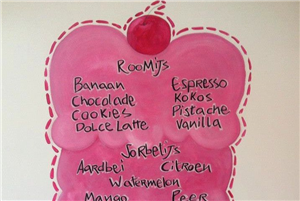 RooMijs
Banaan
Chocolade
Cookies
Dolce Latte
Espresso
Kokos
Pistache
Vanilla
Sorbetijs
Aardbei Citroen
Watermelon
Mango Peer